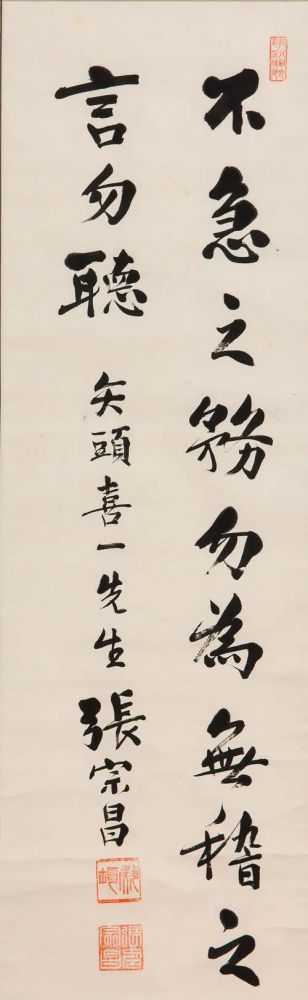 不急之務勿為無稽之
言勿聽
矢頭喜一先生 張宗昌